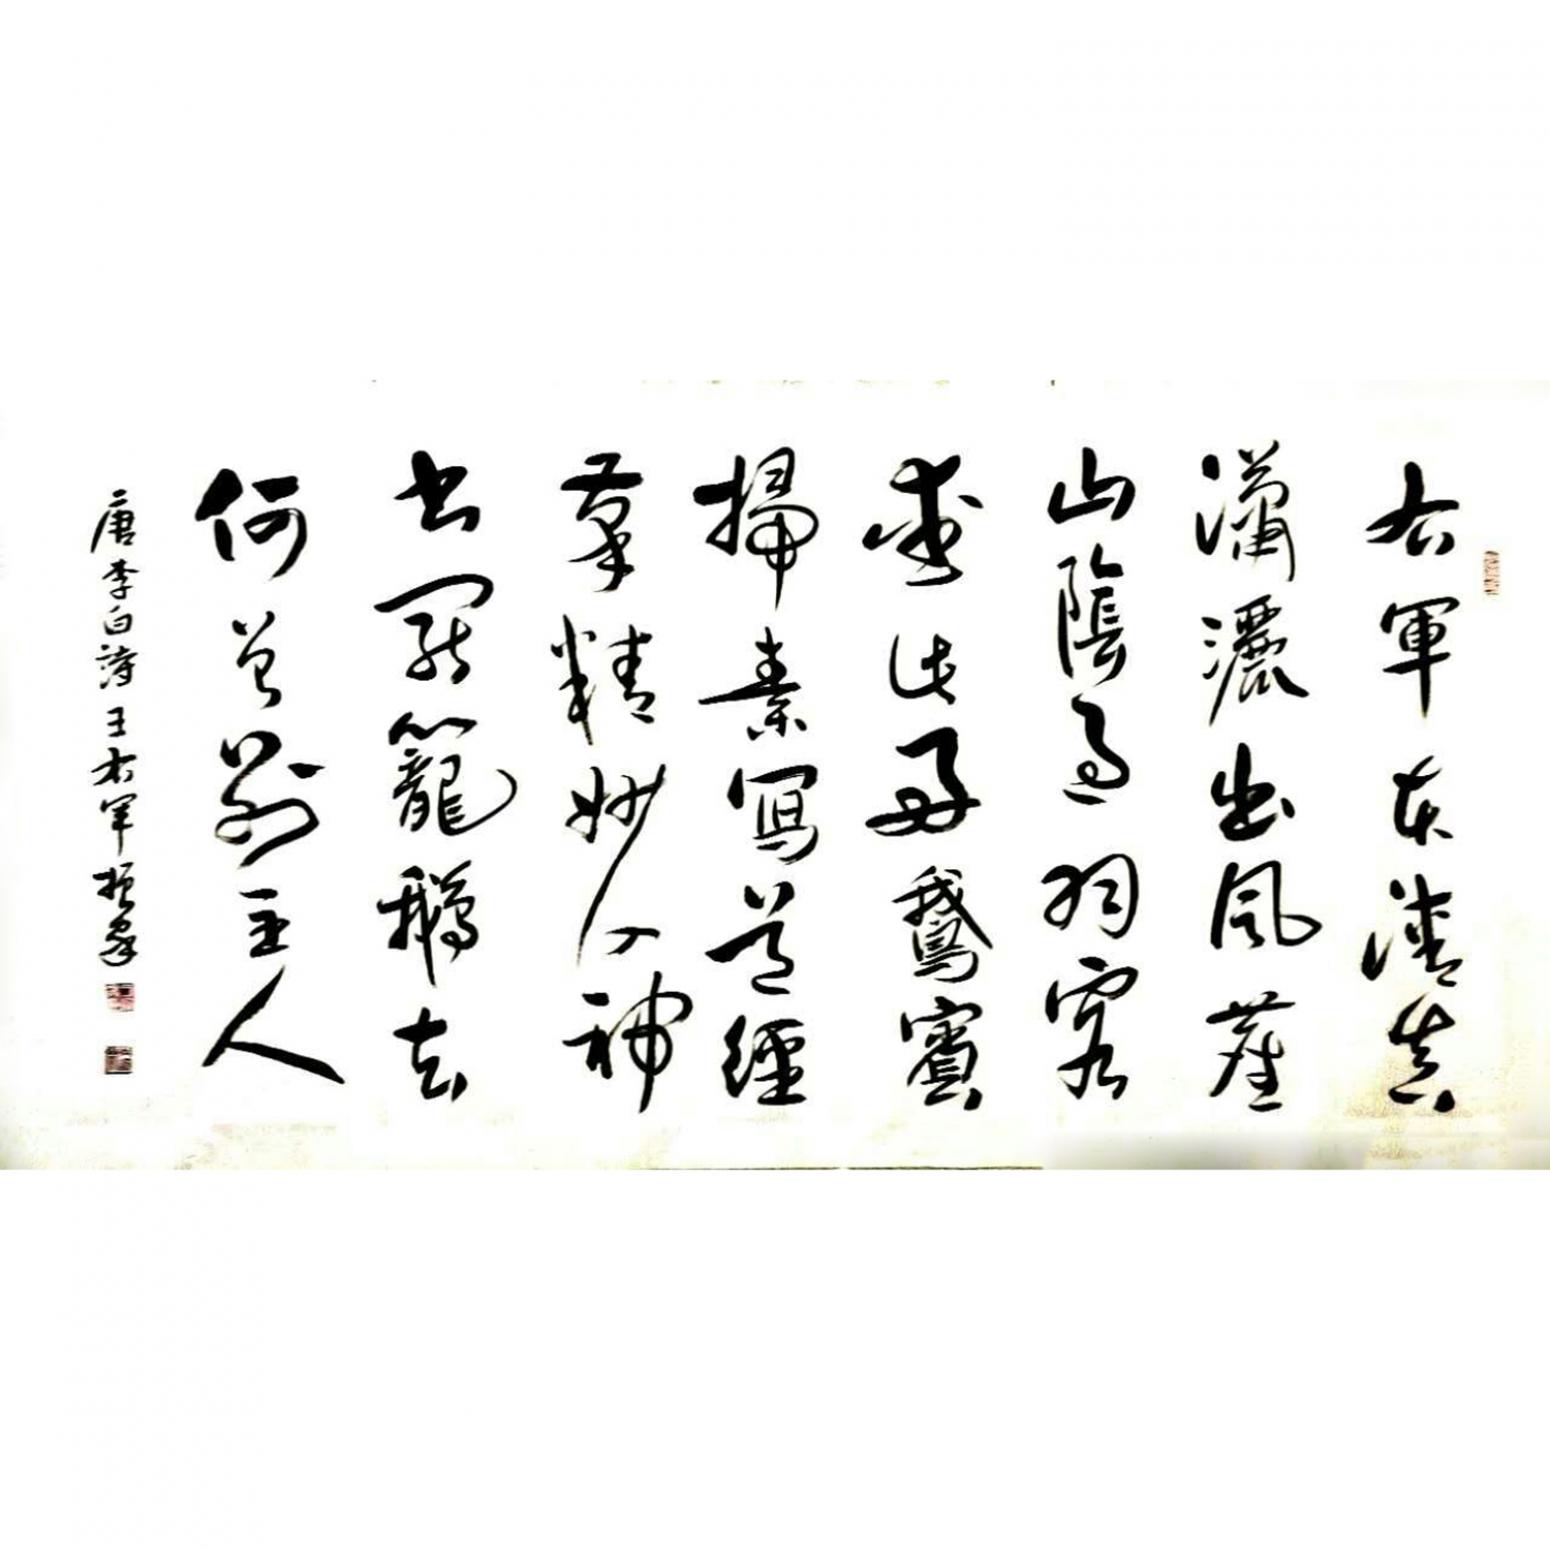 右軍本清真
瀟灑出風塵
山陰過羽客
愛此好鵞賓
掃素寫道經
筆精妙入神
書罷籠鵝去
何曾別主人
唐李白詩王右軍